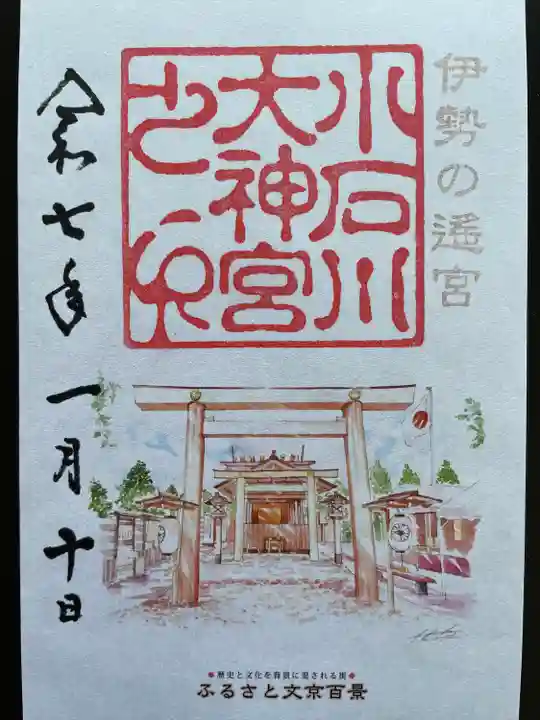 伊勢の遥宮
小石川
大神宮
之印
令和七年一月十日
歴史と文化を背景に愛される街
ふるさと文京百景